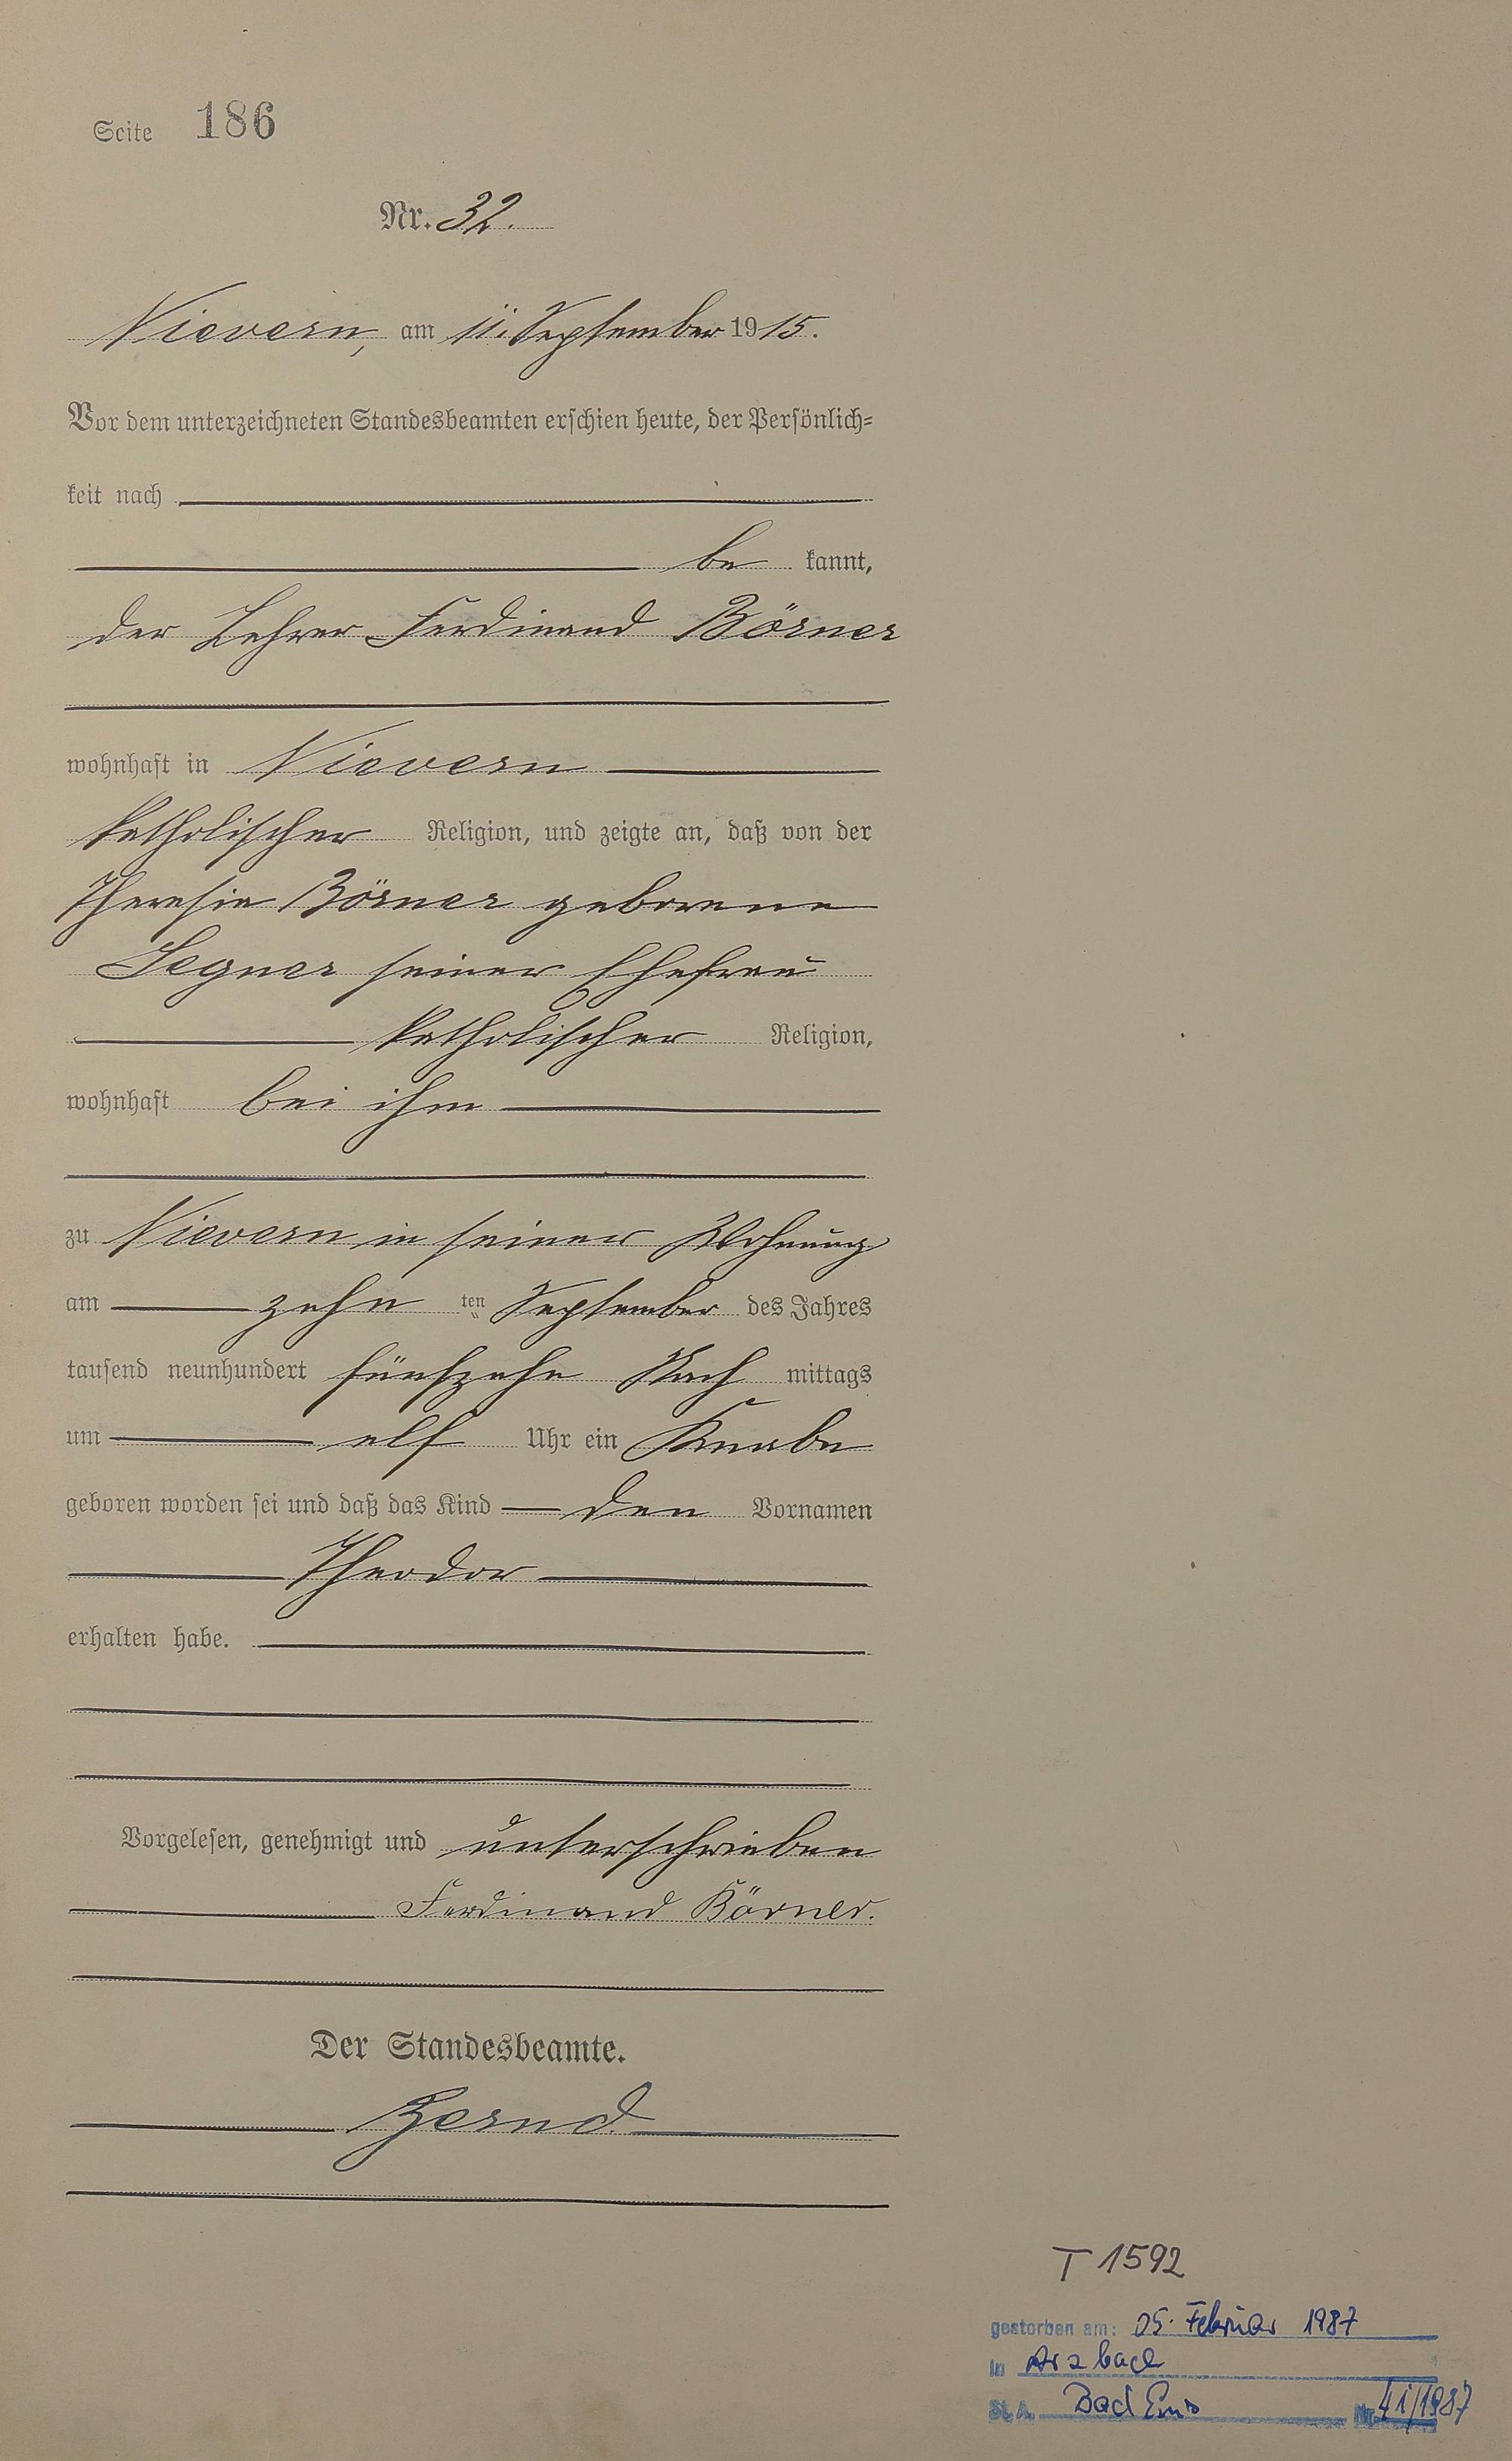 Seite 186
Nr. 32.
Nievern, am 11. September 1915.
Vor dem unterzeichneten Standesbeamten erschien heute, der Persönlich-
keit nach
be kannt,
der Lehrer Ferdinand Börner
wohnhaft in Nievern
katholischer Religion, und zeigte an, daß von der
Theresia Börner geborene
Segner seiner Ehefrau
katholischer Religion,
wohnhaft bei ihm
zu Nievern in seiner Wohnung
am zehn ten September des Jahres
tausend neunhundert fünfzehn Nach mittags
um elf Uhr ein Knabe
geboren worden sei und daß das Kind den Vornamen
Theodor
erhalten habe.
Vorgelesen, genehmigt und unterschrieben
Ferdinand Börner.
Der Standesbeamte.
Bernd
T 1592
gestorben am: 05. Februar 1987
in Arzbach
St. A. Bad Ems Nr. 41/1987